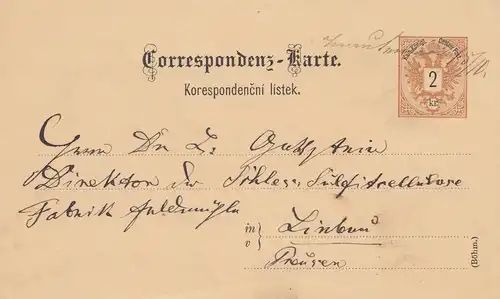 Correspondenz-Karte.
Korespondenční lístek.
2
kr.
Herrn Dr. L. Gottstein
Direktor der Schles. Sulfitcellulose
Fabrik Feldmühle
in
v
Liebau
Preussen
(Böhm.)